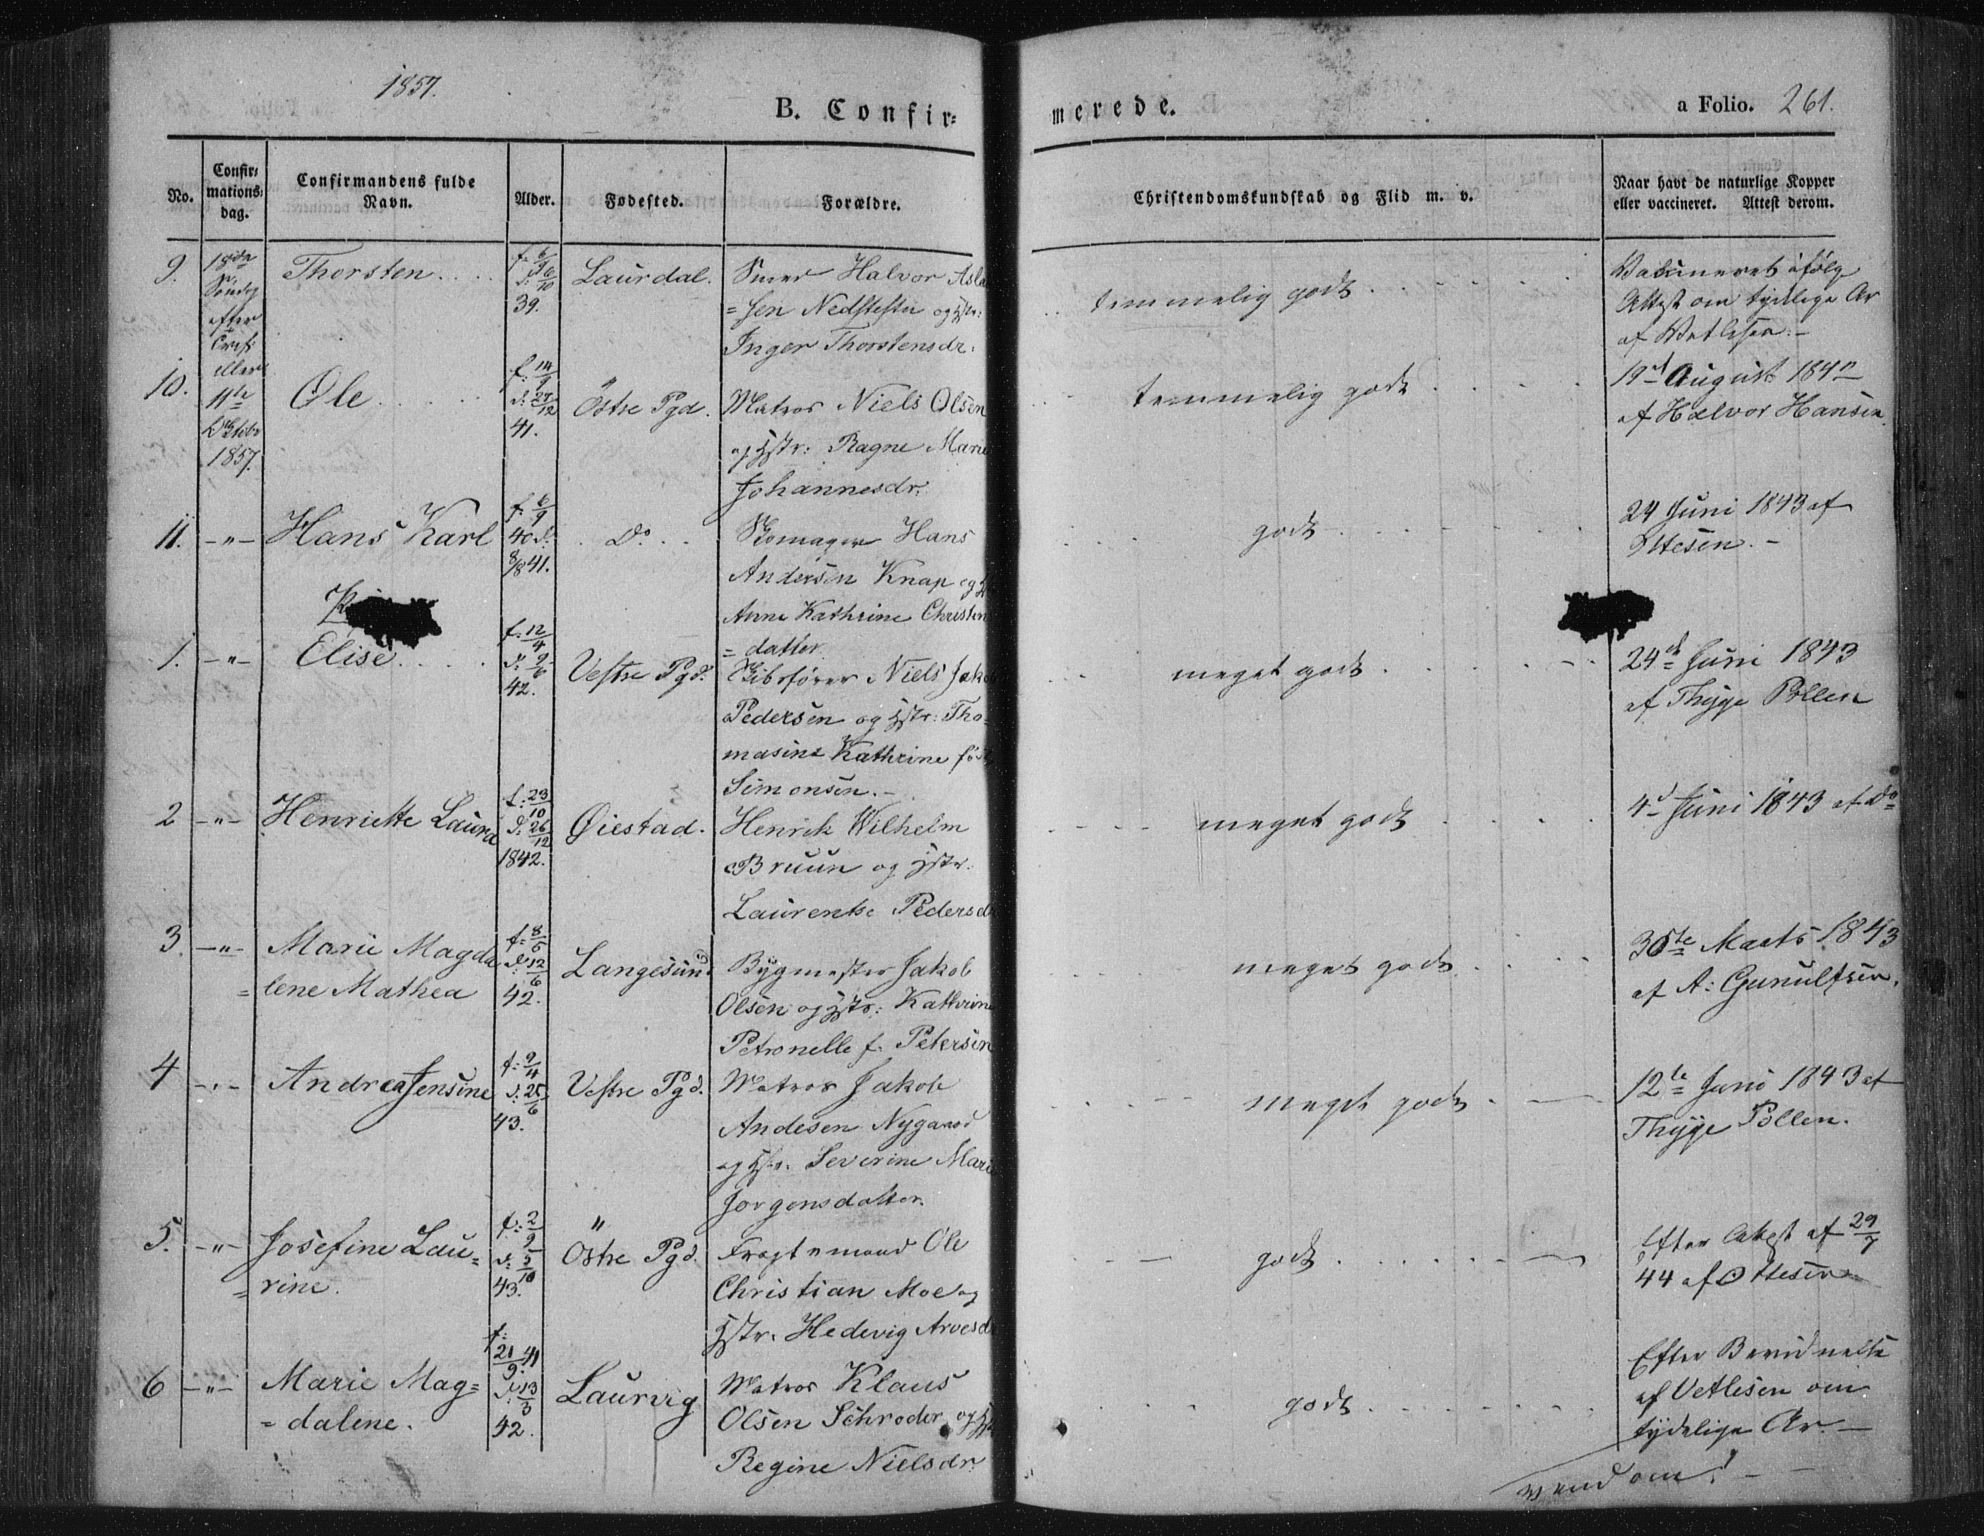 1857.
B. Confirmerede.
a Folio. 261.
No.
Confirmations-dag.
Confirmandens fulde Navn.
Alder.
Fødested.
Forældre.
Christendomskundskab og Flid m. v.
Naar havt de naturlige Kopper
eller vaccineret. Attest derom.
9.
18de
S.
Søndag
efter
eller
11te
Oktbr
1857.
Thorsten
f: 6/9
d: 6/10
39.
Laurdal.
Halvor Asla
=sen Nedstestu og Hstr:
Inger Thorstensdr.
temmelig godt
Vaccineret ifølge
Attest om tydelige Ar
af Vetlesen.-
10.
Ole
f: 14/9
d: 27/12
41.
Østre Pgd.
Matros Niels Olsen
og Hstr: Ragne Marie
Johannesdr.
temmelig godt
19d August 184
af Halvor Hansen
11. -"- Hans Karl
f: 6/9
40 d.
8/8 41.
Do.
Skomager Hans
Andersen Knap og H
Anne Kathrine Christen
=datter
godt
24 Juni 1843 af
Ottesen. -
1. -"- Elise
f: 12/4
d: 9/6
42.
Vestre Pgd.
Skibsfører Niels Jakob
Pedersen og Hstr: Tho-
masine Kathrine født
Simonsen.-
meget godt
24de Juni 1843
af Thyge Pollen
2 -"- Henriette Laura
f: 23/10
d: 26/12
1842.
Øiestad.
Henrik Wilhelm
Bruun og Hstr.
Laurentse Pedersd
meget godt
4d Juni 1843 af Do
3. -"- Marie Magda
=lene Mathea
f: 8/5
d: 12/6
42.
Langesund
Bygmester Jakob
Olsen og Hstr: Kathrine
Petronelle f. Petersen
meget godt
30te Marts 1843
af A: Gunulfsen.
4 -"- Andrea Jensine
f: 9/4
d: 25/6
43.
Vestre Pgd.
Matros Jakob
Andesen Nygaard
og Hstr. Severine Mari
Jørgensdatter.
meget godt
12te Juni 1843 af
Thyge Pollen.
5. -"- Josefine Lau=
=rine.
f: 2/9
d: 5/10
43.
Østre Pgd.
Fragtemand Ole
Christian Moe og
Hstr. Hedevig Arvesd
godt
Efter Attest af 29/7
44 af Ottesen
6 -"- Marie Mag=
=dalene.
f:
21/9 41
d: 13/3
42.
Laurvig
Matros Klaus
Olsen Schrøder og H
Regine Nielsdr.
godt
Efter Bevidnelse
af Vetlesen om
tydelige Ar.-
vend om!